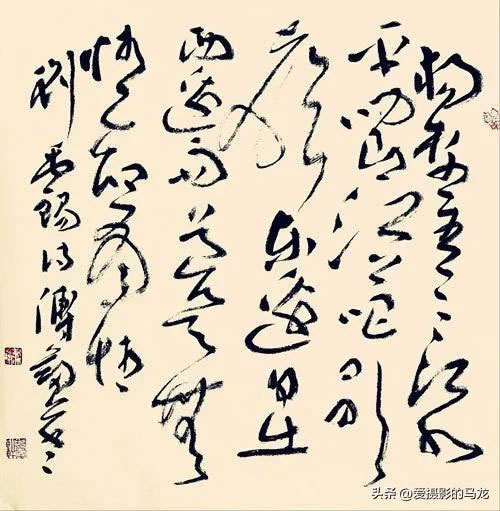 杨柳青〻江水
平闻郎江上唱歌
声东边日出
西边雨道是无
情却有情
刘禹锡诗
头条 @爱摄影的马龙